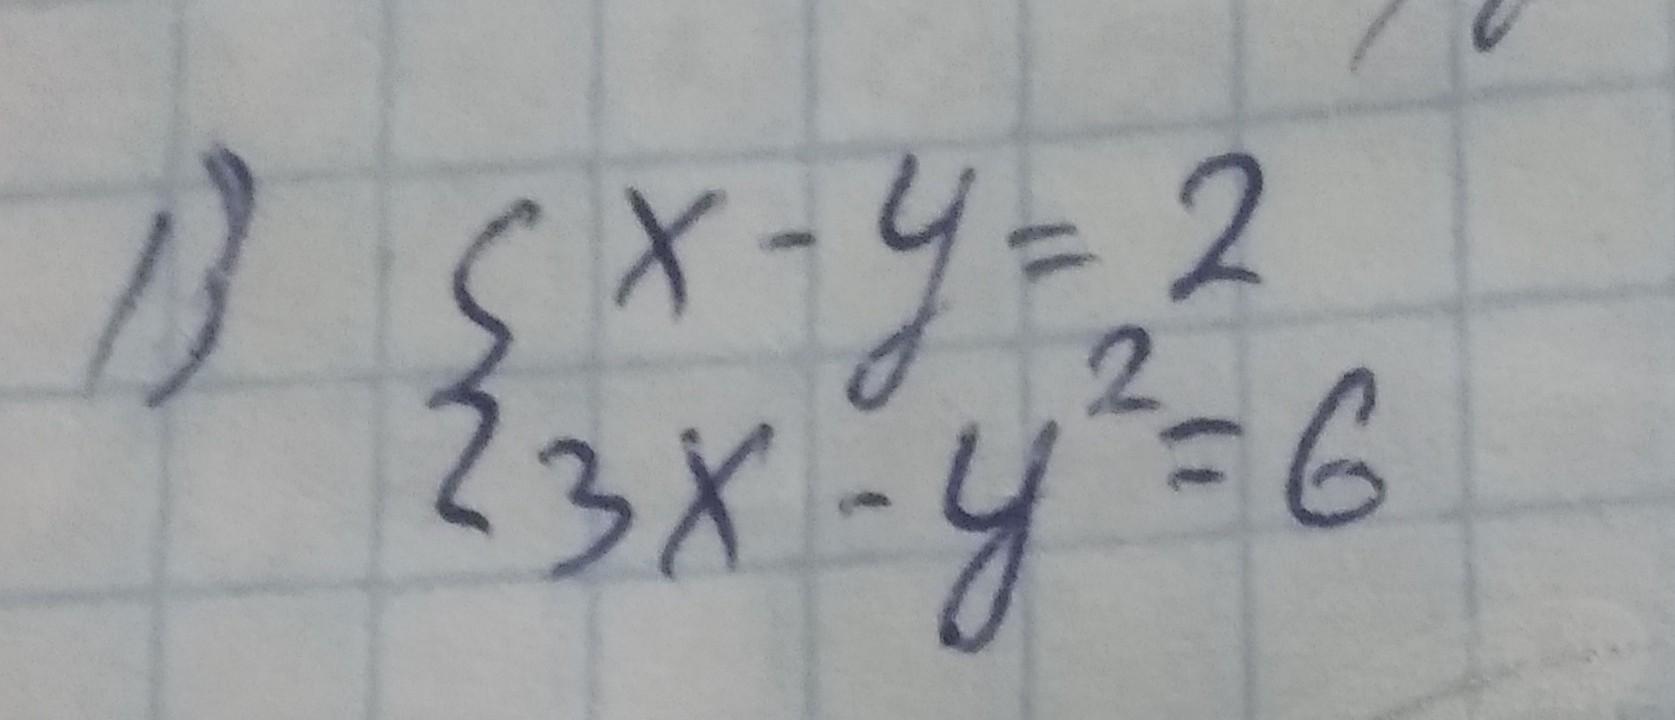 1) { x - y = 2
3x - y² = 6